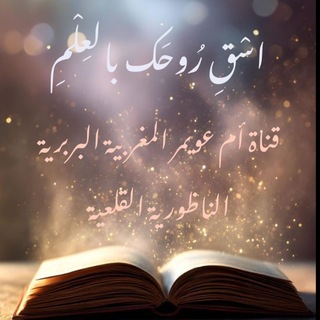 اسْقِ رُوحَك بالعِلْمِ
قناة أم عويمر المغربية البربرية
الناظورية القلعية